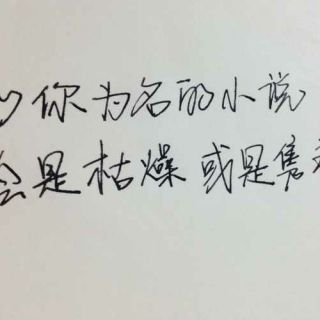 以你为名的小说
会是枯燥或是隽